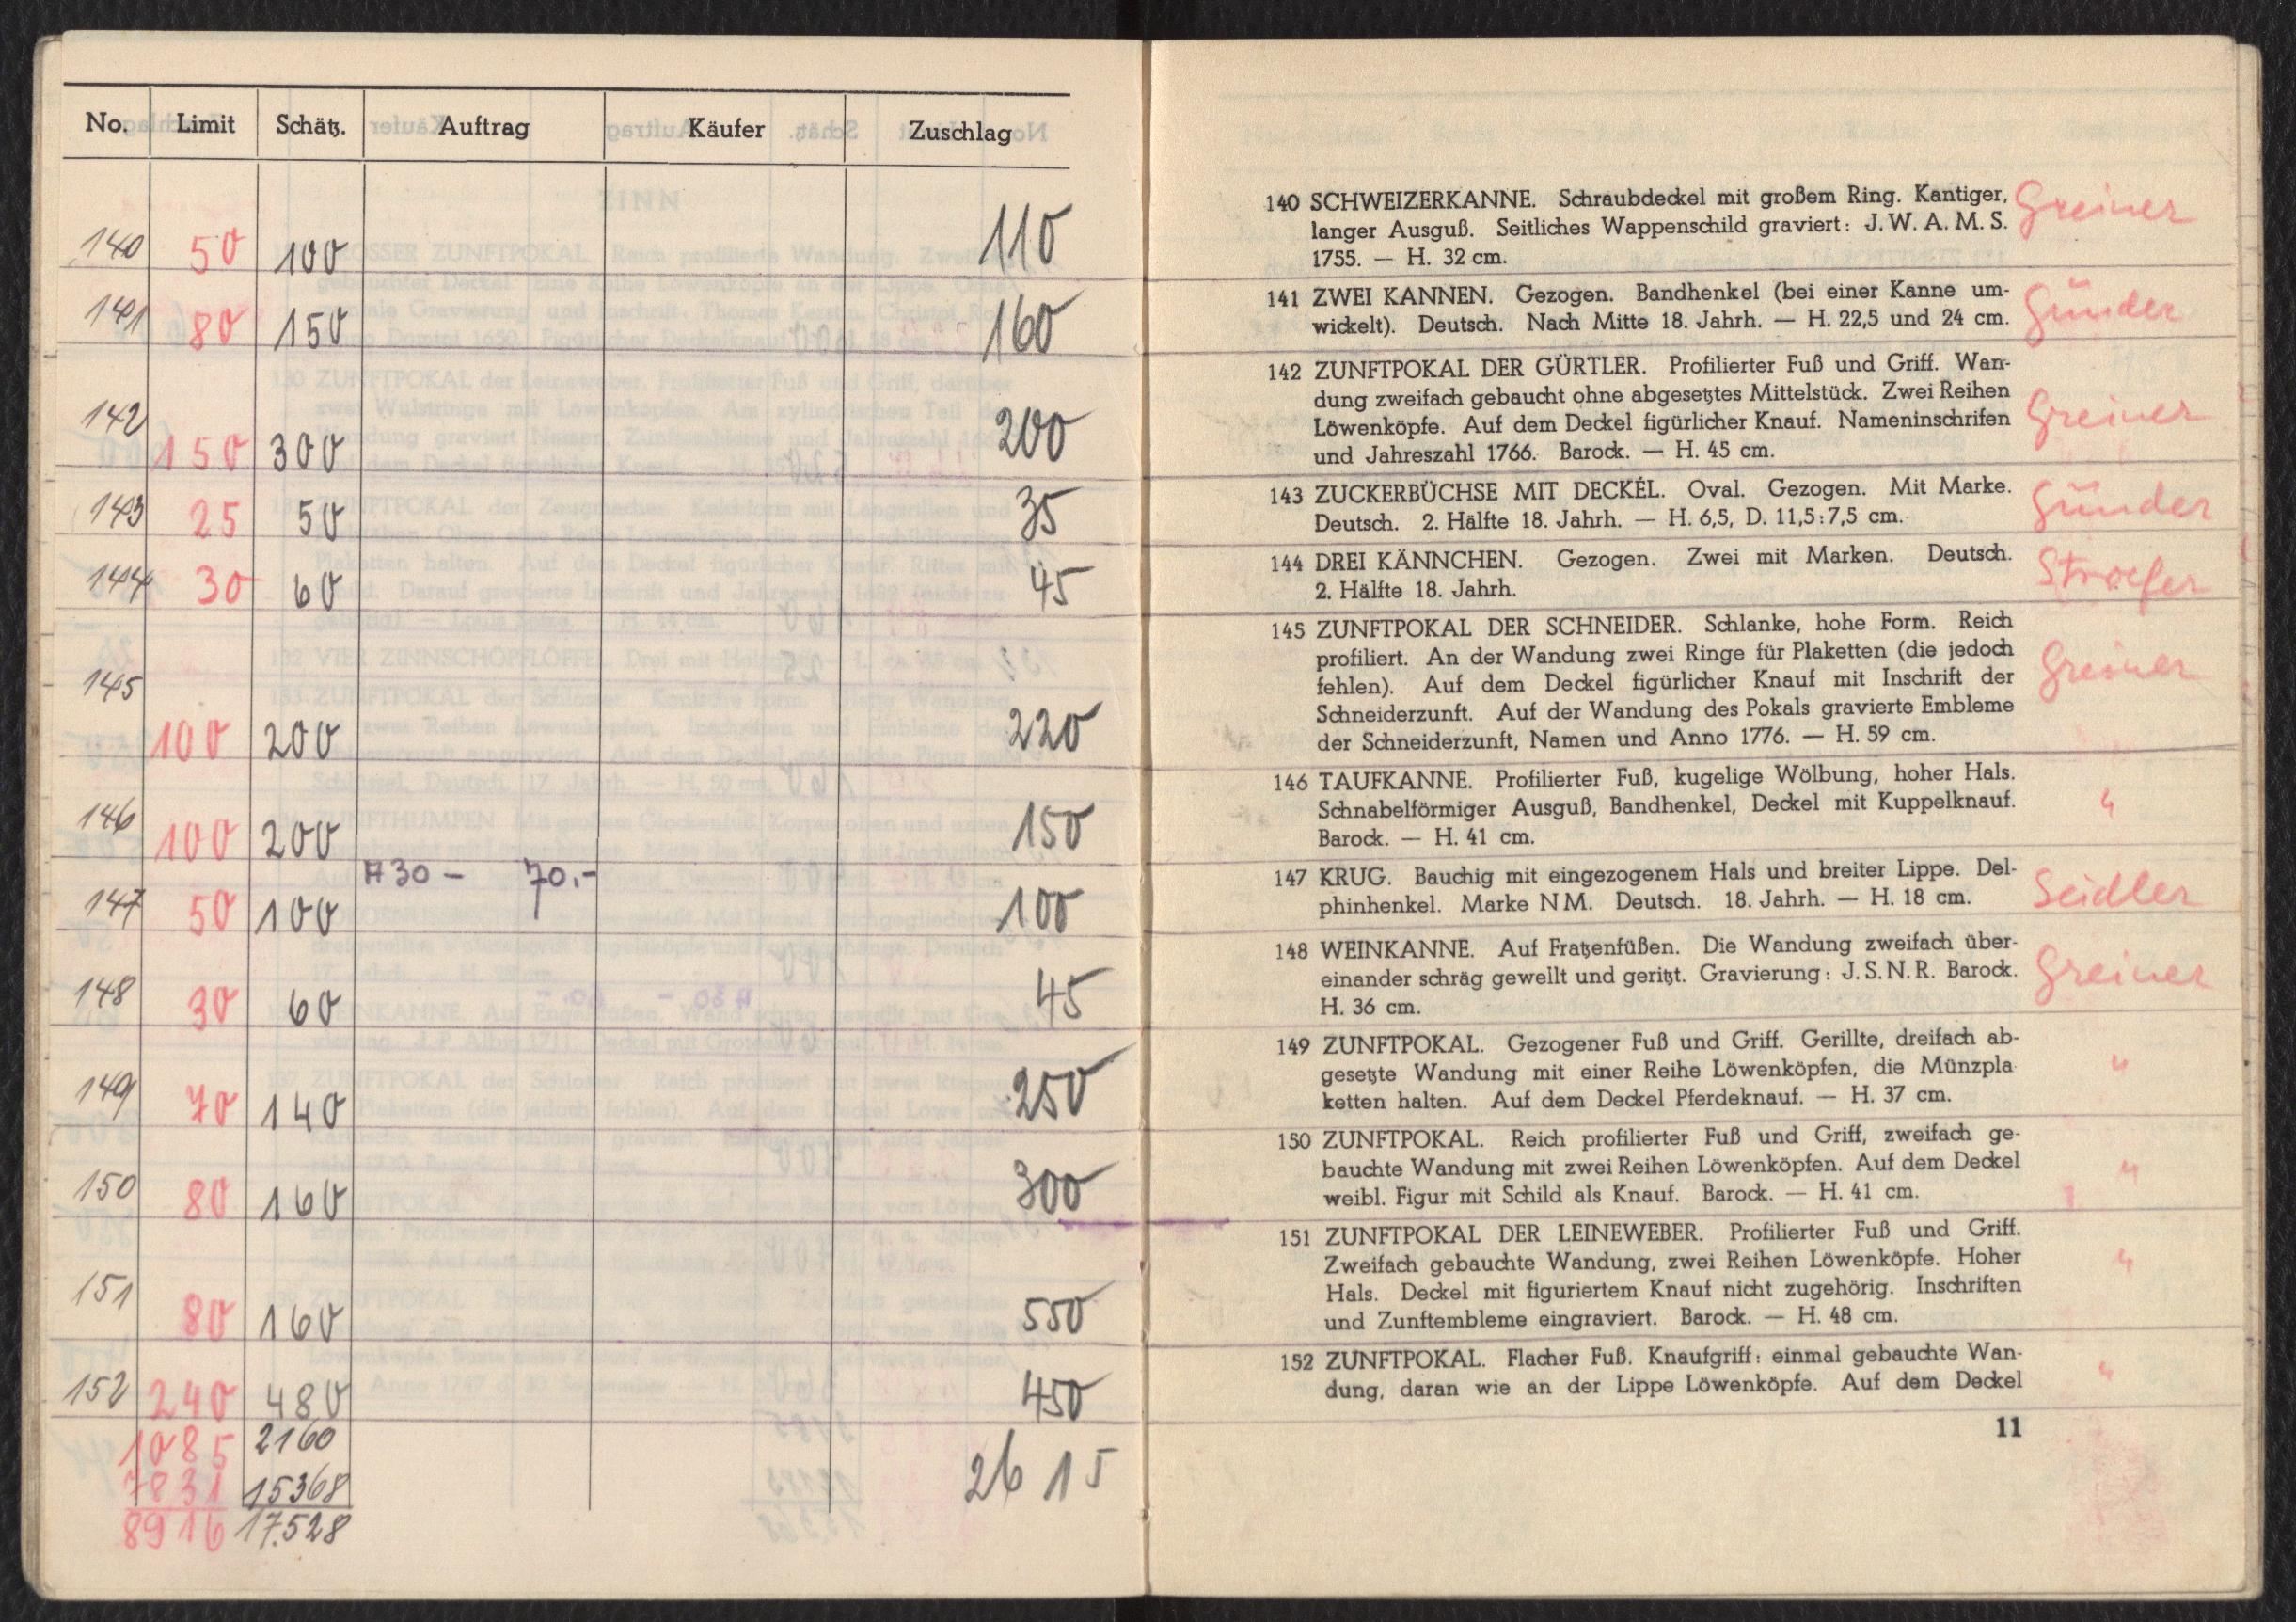 No. Limit Schätz. Auftrag Käufer Zuschlag
140 50 100 110
141 80 150 160
142 150 300 200
143 25 50 35
144 30 60 45
145 100 200 220
146 100 200 150
A 30 - 70.-
147 50 100 100
148 30 60 45
149 70 140 250
150 80 160 300
151 80 160 550
152 240 480 450
1085 2160
7831 15368 2615
8916 17.528
140 SCHWEIZERKANNE. Schraubdeckel mit großem Ring. Kantiger, Greiner
langer Ausguß. Seitliches Wappenschild graviert: J. W. A. M. S.
1755. — H. 32 cm.
141 ZWEI KANNEN. Gezogen. Bandhenkel (bei einer Kanne um- Günder
wickelt). Deutsch. Nach Mitte 18. Jahrh. — H. 22,5 und 24 cm.
142 ZUNFTPOKAL DER GÜRTLER. Profilierter Fuß und Griff. Wan-
dung zweifach gebaucht ohne abgesetztes Mittelstück. Zwei Reihen
Löwenköpfe. Auf dem Deckel figürlicher Knauf. Nameninschrifen Greiner
und Jahreszahl 1766. Barock. — H. 45 cm.
143 ZUCKERBÜCHSE MIT DECKEL. Oval. Gezogen. Mit Marke. Günder
Deutsch. 2. Hälfte 18. Jahrh. — H. 6,5, D. 11,5:7,5 cm.
144 DREI KÄNNCHEN. Gezogen. Zwei mit Marken. Deutsch. Stroefer
2. Hälfte 18. Jahrh.
145 ZUNFTPOKAL DER SCHNEIDER. Schlanke, hohe Form. Reich
profiliert. An der Wandung zwei Ringe für Plaketten (die jedoch Greiner
fehlen). Auf dem Deckel figürlicher Knauf mit Inschrift der
Schneiderzunft. Auf der Wandung des Pokals gravierte Embleme
der Schneiderzunft, Namen und Anno 1776. — H. 59 cm.
146 TAUFKANNE. Profilierter Fuß, kugelige Wölbung, hoher Hals.
Schnabelförmiger Ausguß, Bandhenkel, Deckel mit Kuppelknauf. "
Barock. — H. 41 cm.
147 KRUG. Bauchig mit eingezogenem Hals und breiter Lippe. Del- Seidler
phinhenkel. Marke N M. Deutsch. 18. Jahrh. — H. 18 cm.
148 WEINKANNE. Auf Fratzenfüßen. Die Wandung zweifach über-
einander schräg gewellt und geritzt. Gravierung: J. S. N. R. Barock. Greiner
H. 36 cm.
149 ZUNFTPOKAL. Gezogener Fuß und Griff. Gerillte, dreifach ab- "
gesetzte Wandung mit einer Reihe Löwenköpfen, die Münzpla-
ketten halten. Auf dem Deckel Pferdeknauf. — H. 37 cm.
150 ZUNFTPOKAL. Reich profilierter Fuß und Griff, zweifach ge-
bauchte Wandung mit zwei Reihen Löwenköpfen. Auf dem Deckel "
weibl. Figur mit Schild als Knauf. Barock. — H. 41 cm.
151 ZUNFTPOKAL DER LEINEWEBER. Profilierter Fuß und Griff.
Zweifach gebauchte Wandung, zwei Reihen Löwenköpfe. Hoher "
Hals. Deckel mit figuriertem Knauf nicht zugehörig. Inschriften
und Zunftembleme eingraviert. Barock. — H. 48 cm.
152 ZUNFTPOKAL. Flacher Fuß. Knaufgriff: einmal gebauchte Wan- "
dung, daran wie an der Lippe Löwenköpfe. Auf dem Deckel
11